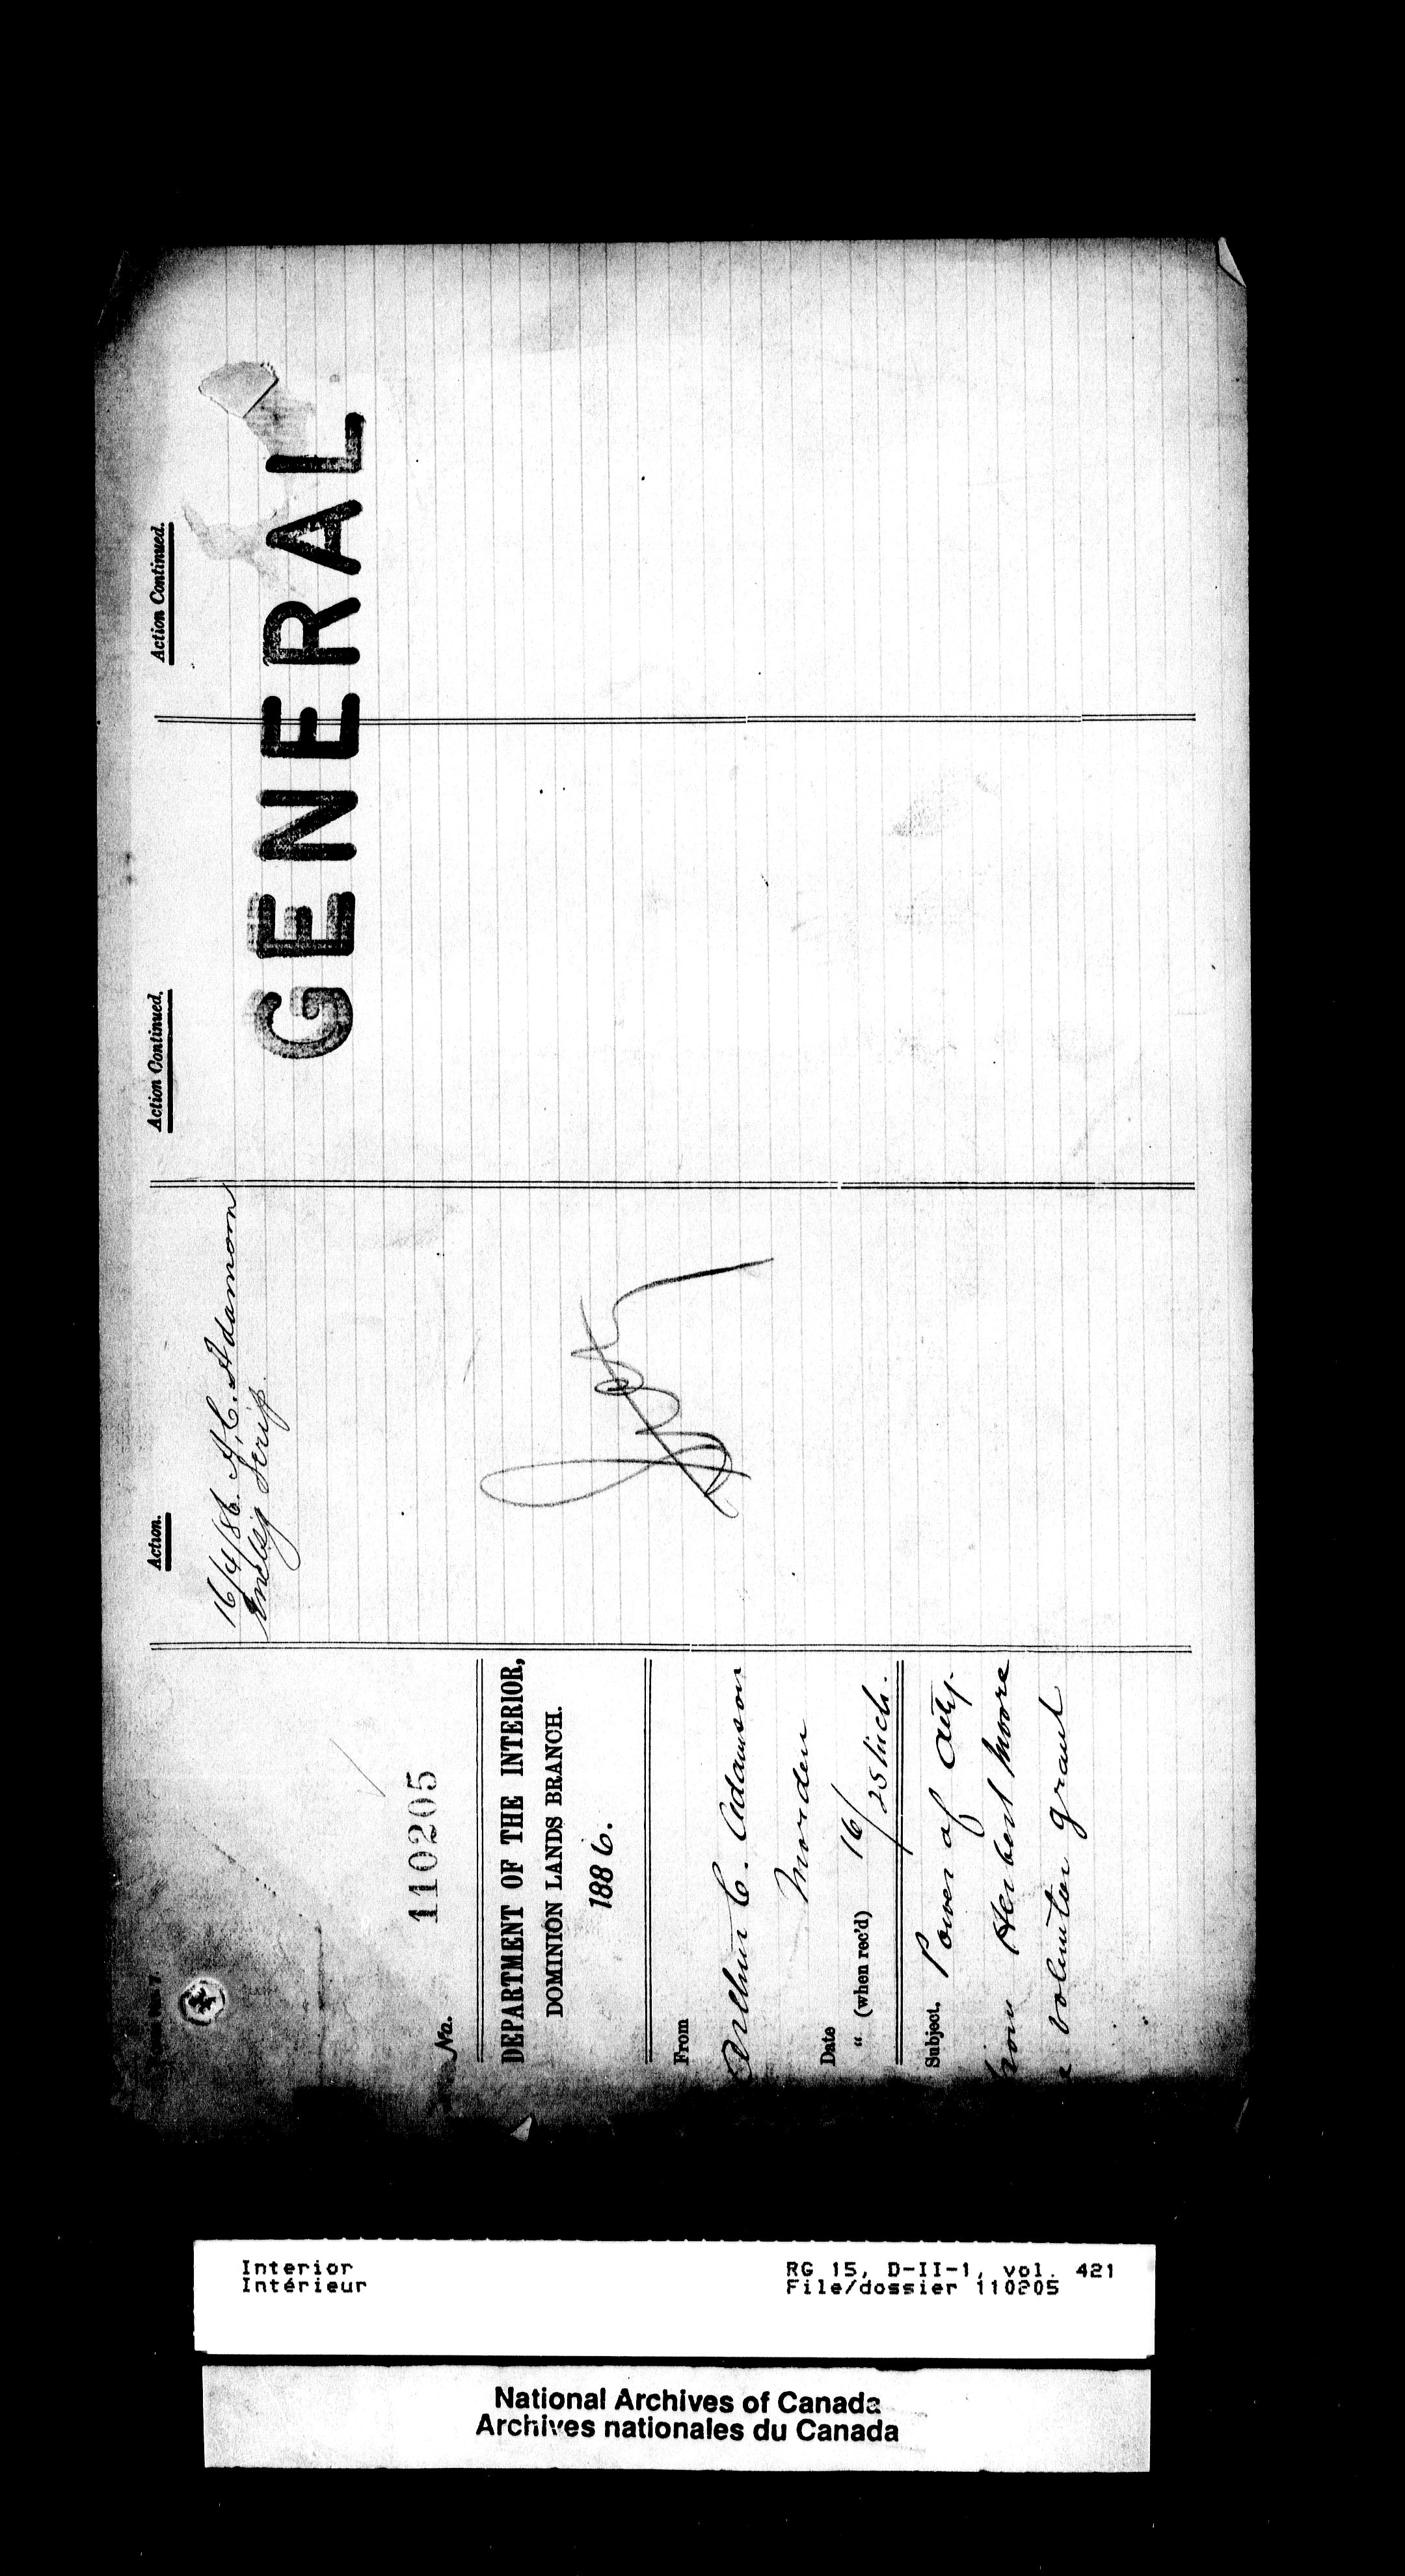 No. 110205
DEPARTMENT OF THE INTERIOR,
DOMINION LANDS BRANCH.
1886.
From
Arthur C. Adamson
Morden
Date 16/
" (when rec'd) 25 Mch.
Subject. Power of Atty.
from Herbert Moore
volunteer grant
Action.
16/4/86. A. C. Adamson
Scrip.
Action Continued.
Action Continued.
GENERAL
Interior
Intérieur
RG 15, D-II-1, vol. 421
File/dossier 110205
National Archives of Canada
Archives nationales du Canada